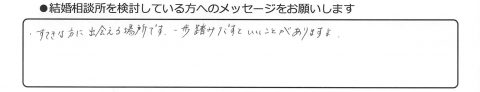 ●結婚相談所を検討している方へのメッセージをお願いします
・すてきな方に出会える場所です。一歩踏みだすといいことがありますよ。